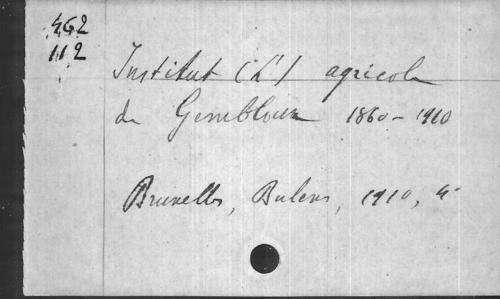 462
112
Institut (L') agricole
de Gembloux 1860-1910
Bruxelles, Bulens, 1910, 4°